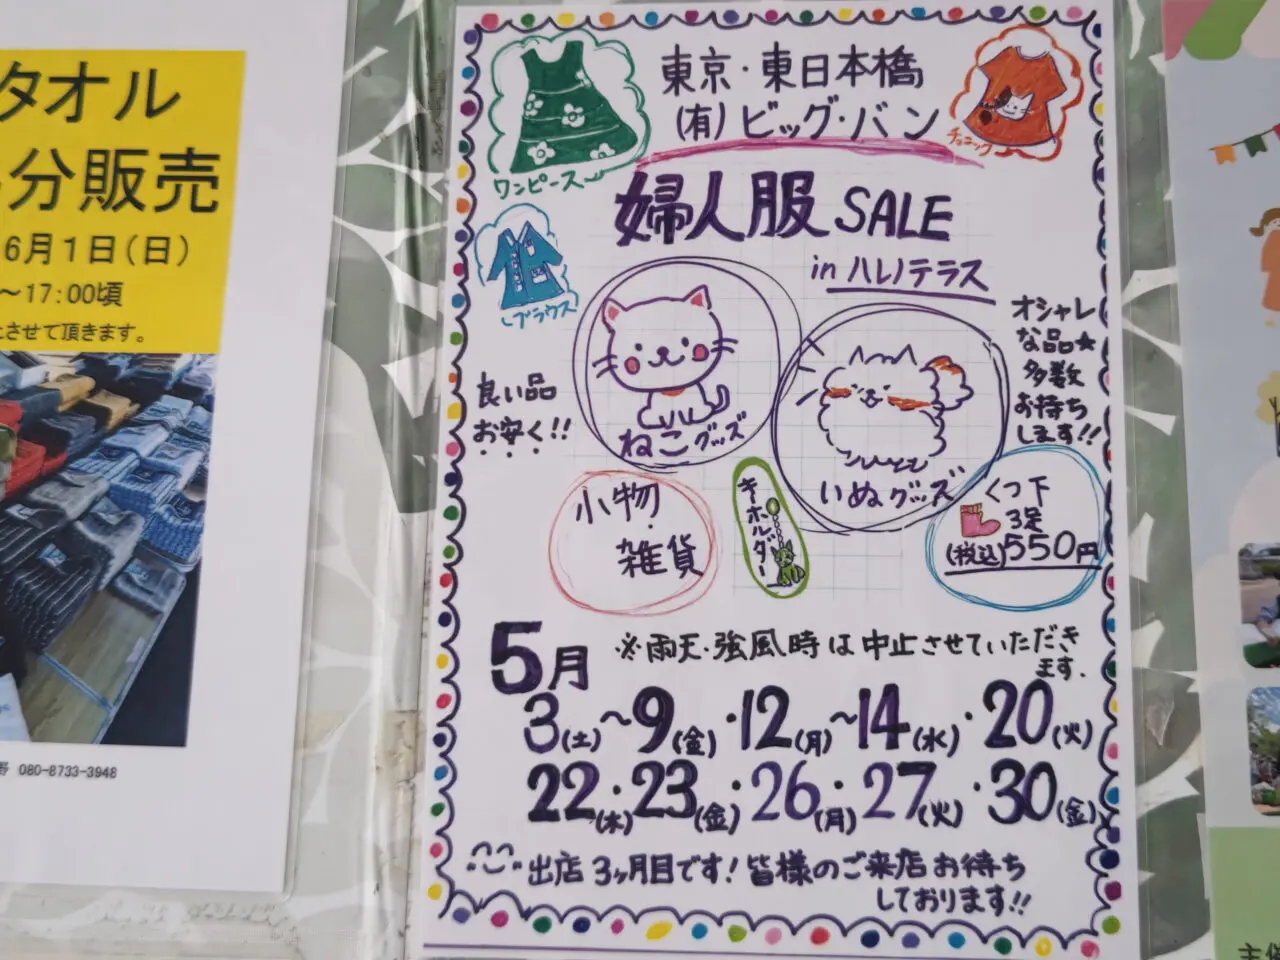 タオル
分販売
6月1日(日)
～17:00頃
させて頂きます。
080-8733-3948
東京・東日本橋
(有)ビッグ・バン
ワンピース
チュニック
婦人服 SALE
in ハレノテラス
ブラウス
良い品
お安く!!
ねこグッズ
いぬグッズ
オシャレ
な品★
多数
お待ち
します!!
小物・
雑貨
キーホルダー
くつ下
3足
(税込)550円
5月
※雨天・強風時は中止させていただき
ます.
3(土)～9(金)・12(月)～14(水)・20(火)
22(木)・23(金)・26(月)・27(火)・30(金)
出店3ヶ月目です!皆様のご来店お待ち
しております!!
主催